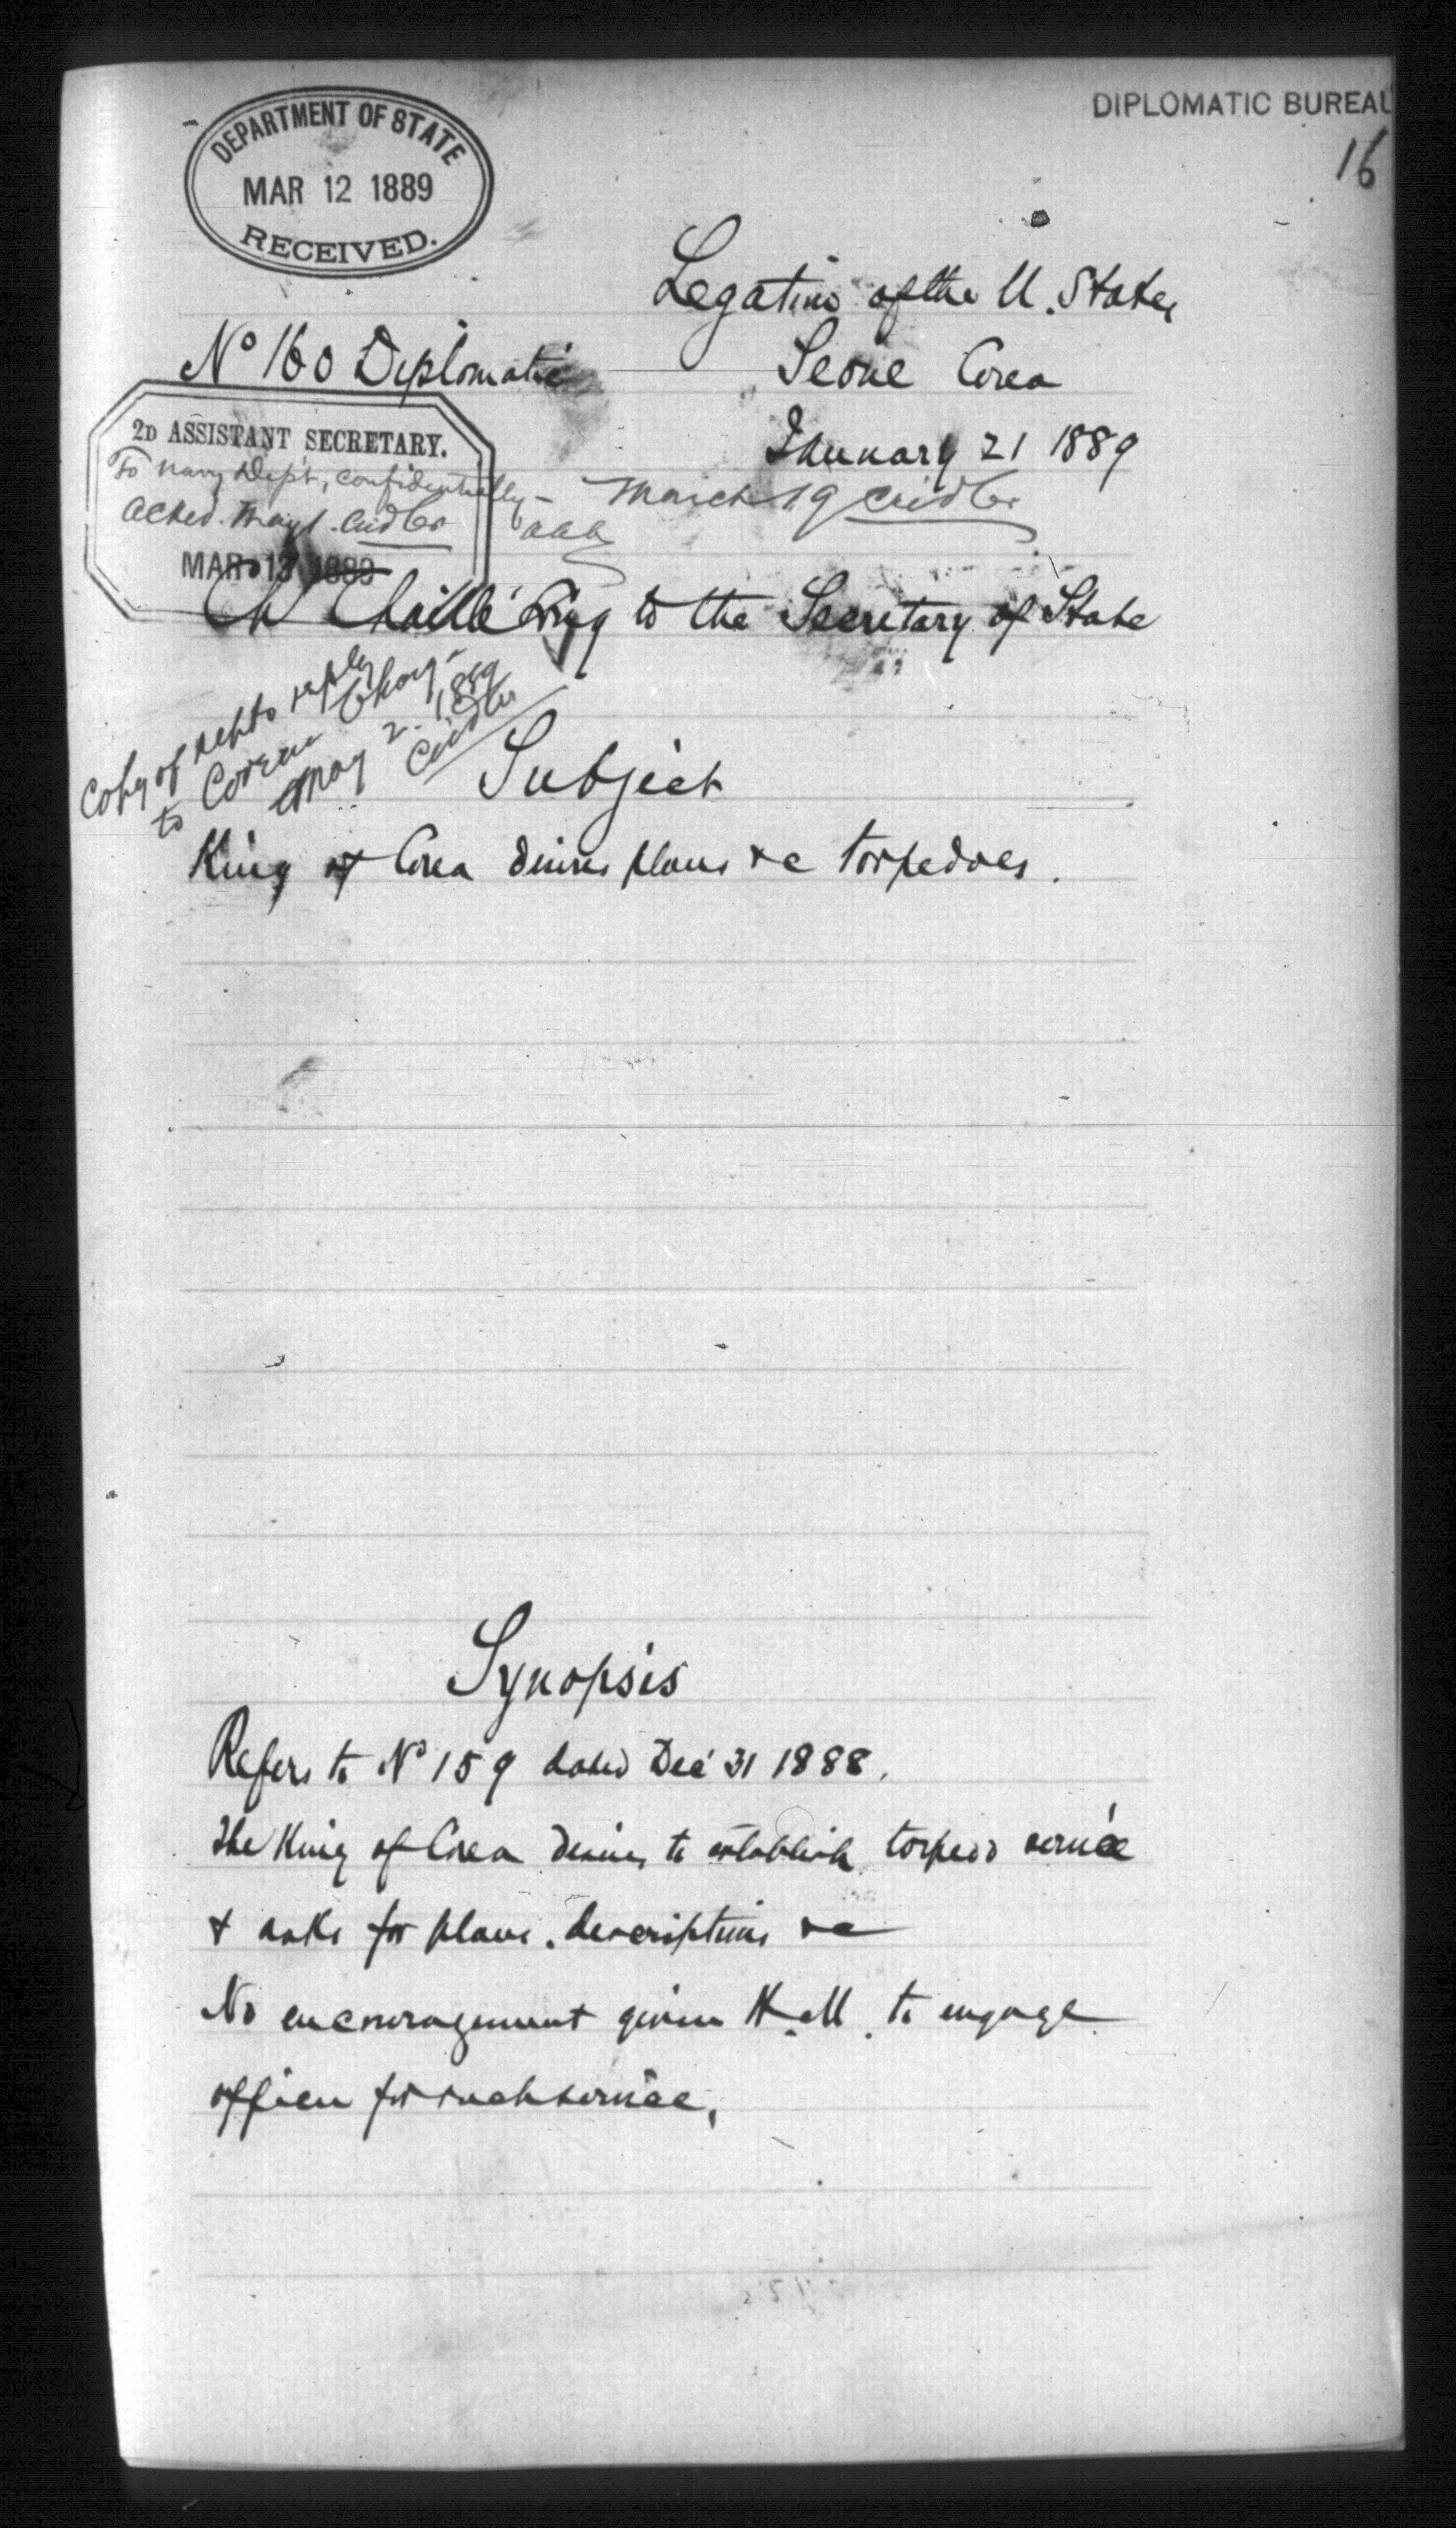 DEPARTMENT OF STATE
MAR 12 1889
RECEIVED.
DIPLOMATIC BUREAU
16
Legation of the U. States
Nº 160 Diplomatic
Seoul Corea
January 21 1889
2D ASSISTANT SECRETARY.
To Navy Dep't, confidentially –
aaa
March 19 Cridler
Acked. May 1. Cridler
MAR 13 1889
Ch Chaillé Long to the Secretary of State
Copy of repts reply
to Corean Chary-
May 2. 1889
Cridler
Subject
King of Corea desires plans &c torpedoes.
Synopsis
Refers to Nº 159 dated Dec 31 1888.
The King of Corea desires to establish torpedo service
& asks for plans. descriptions &c
No encouragement given H.M. to engage
officer for such service.